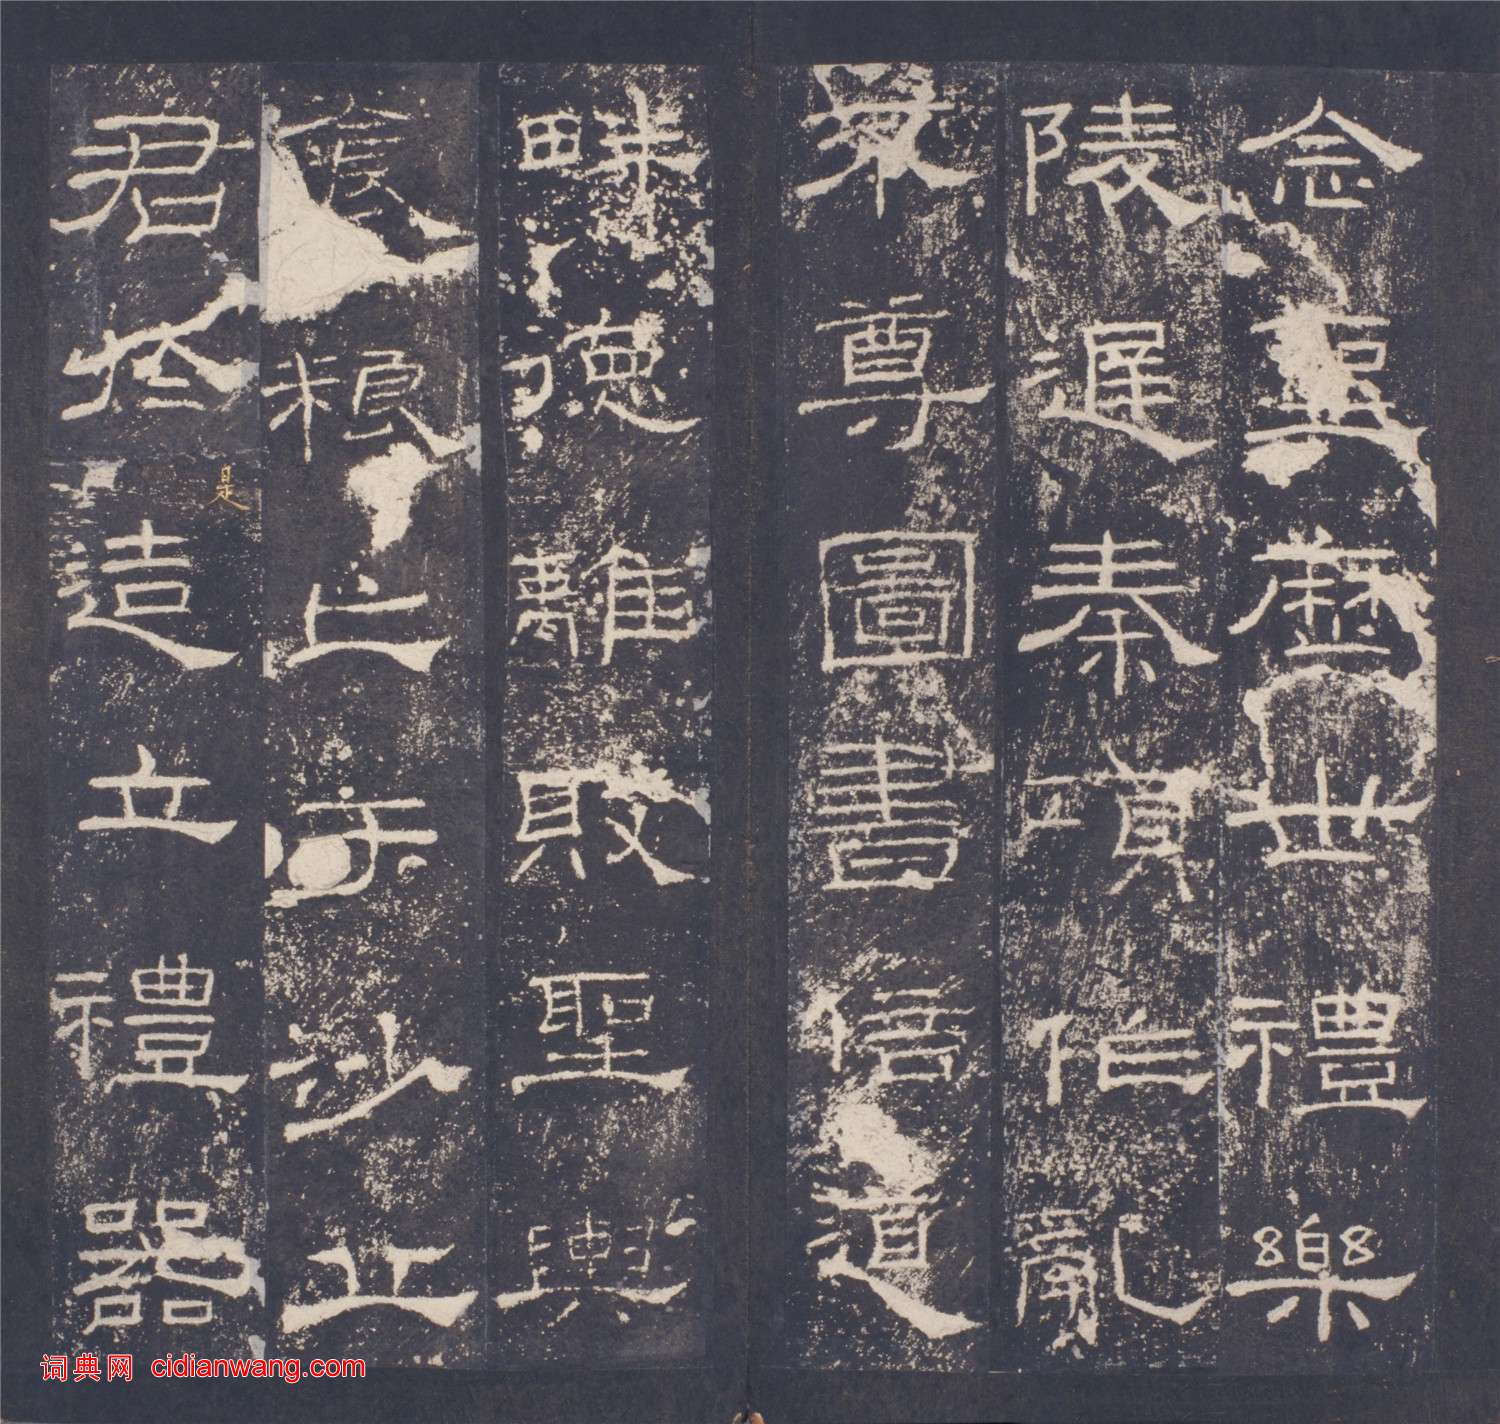 念聖歷世禮樂
陵遲秦項作亂
不尊圖書倍道
畔德離敗聖輿
食粮亡于沙丘
君於是造立禮器
词典网 cidianwang.com